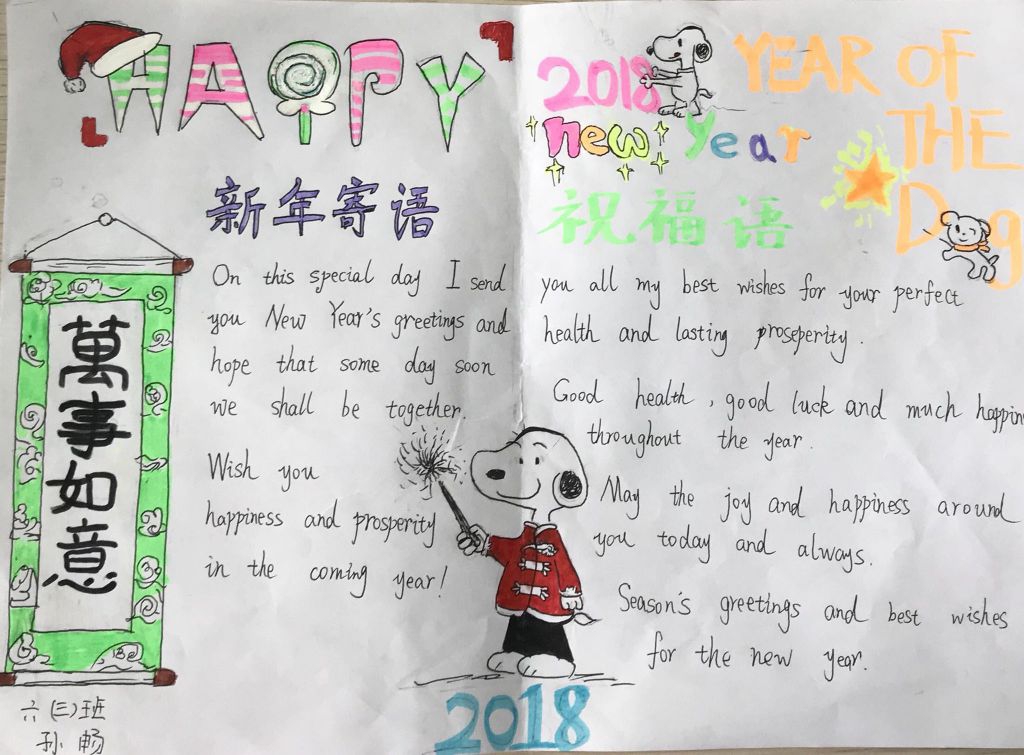 HAPPY
新年寄语
On this special day I send
you New Year's greetings and
hope that some day soon
we shall be together.
Wish you
happiness and prosperity
in the coming year!
萬事如意
六(三)班
孙畅
2018
new year
YEAR OF
THE
Dog
祝福语
you all my best wishes for your perfect
health and lasting proseperity.
Good health, good luck and much happin
throughout the year.
May the joy and happiness around
you today and always.
Season's greetings and best wishes
for the new year.
2018